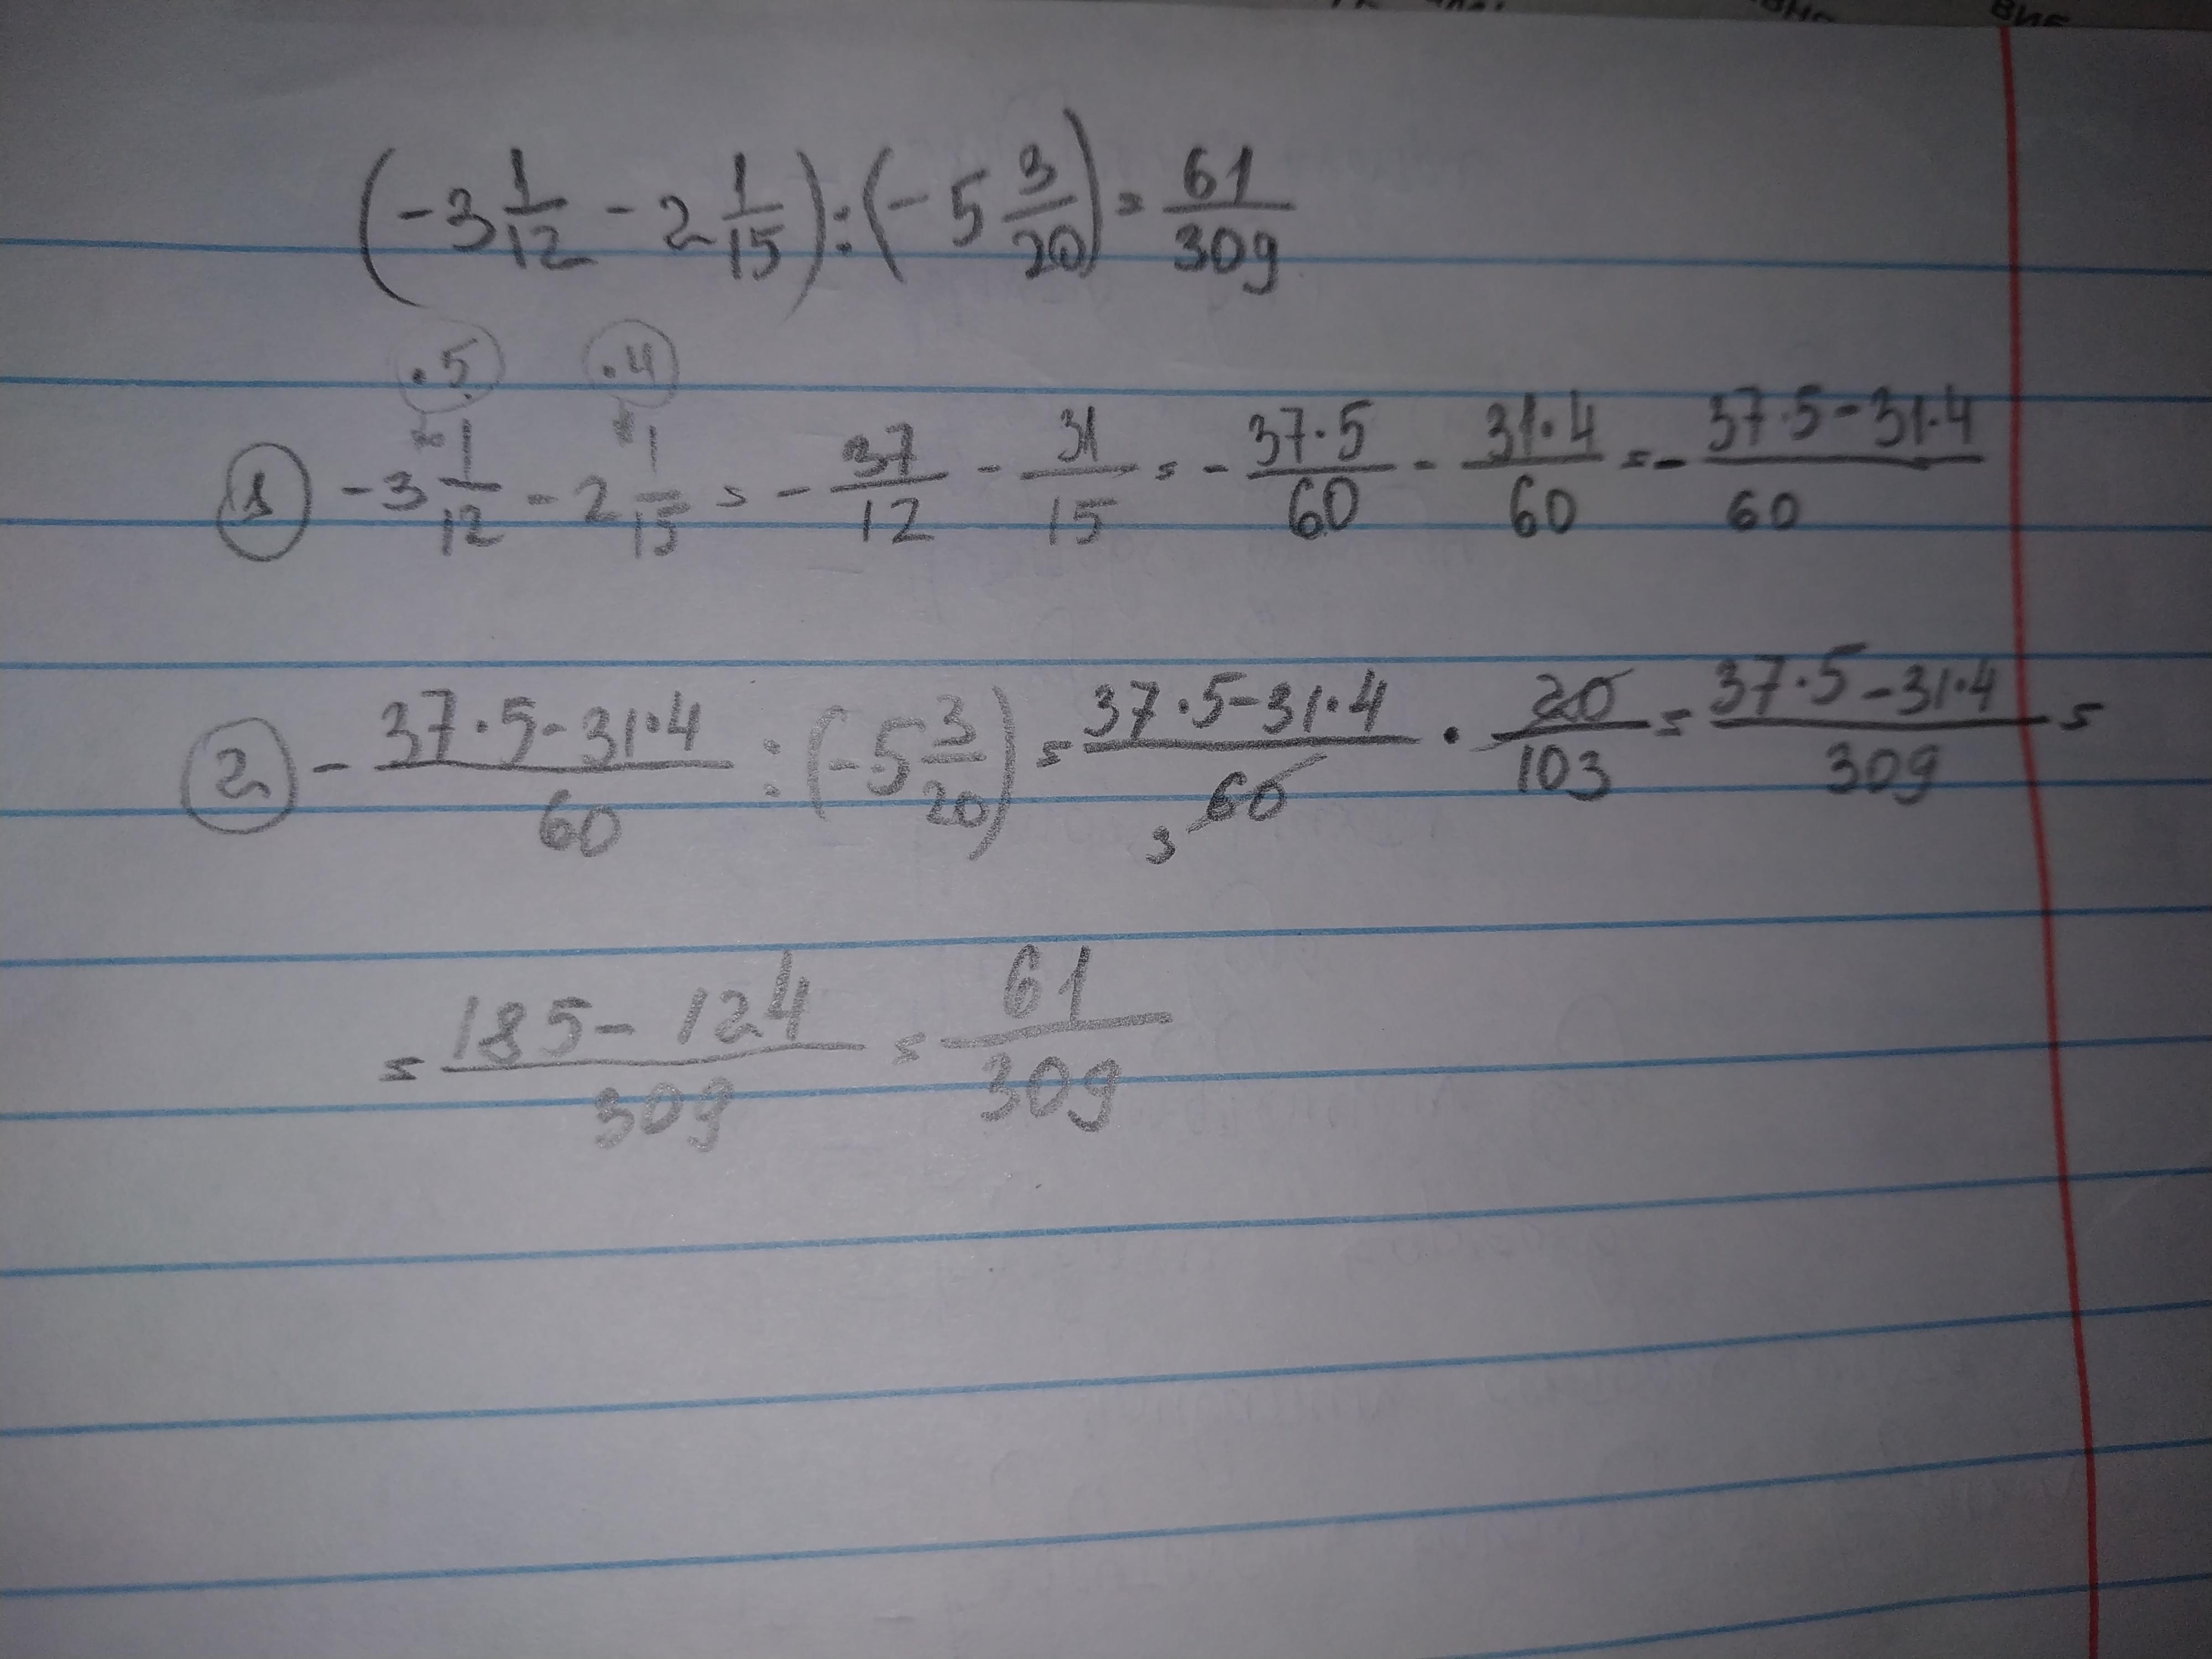 (-3 1/12 - 2 1/15) : (-5 3/20) = 61/309
·5 ·4
1 -3 1/12 - 2 1/15 = - 37/12 - 31/15 = - 37·5/60 - 31·4/60 = - 37·5-31·4/60
2 - 37·5-31·4/60 : (-5 3/20) = 37·5-31·4/60 · 20/103 = 37·5-31·4/309 =
3
= 185-124/309 = 61/309